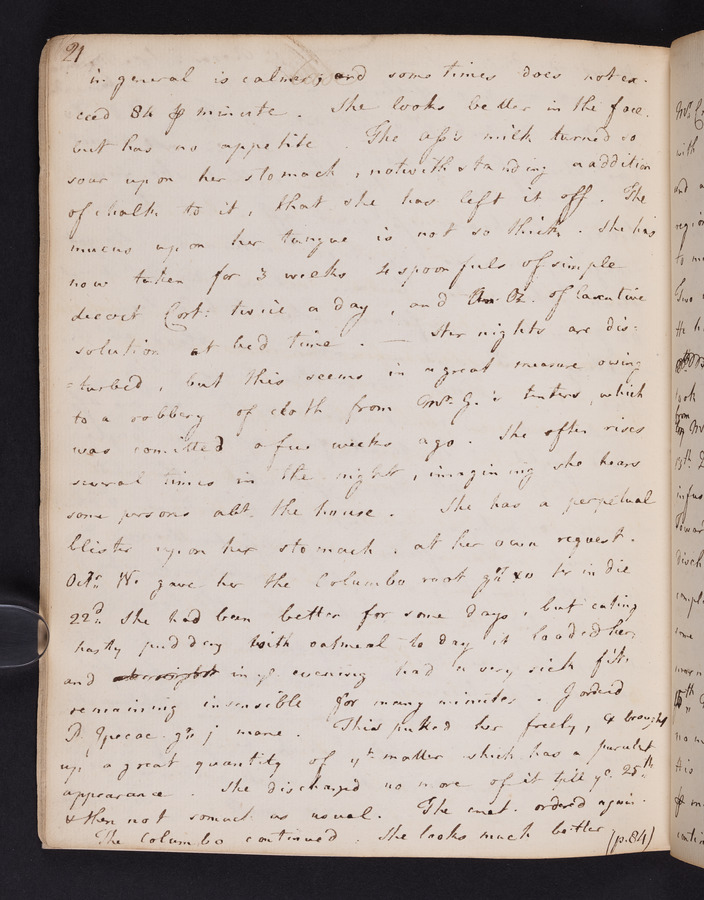 21
in general is calmer; and some times does not ex-
ceed 84 ℔ minute. She looks better in the face.
but has no appetite. The ass's milk turned so
sour upon her stomach, notwithstanding addition
of chalk to it, that she has left it off. The
mucus upon her tungue is not so thick. She has
now taken for 3 weeks 4 spoonfuls of simple
decoct Cort: twice a day, and Oz. of laxative
solution at bed time. — Her nights are dis:
=turbed, but this seems in a great measure owing
to a robbery of cloth from Mr. G.'s tenters, which
was comitted a few weeks ago. She often rises
several times in the night, imagining she hears
some persons abt. the house. She has a perpetual
blister upon her stomach, at her own request.
Octr. 18. gave her the Columbo root gr. xv ter in die
22d. She had been better for some days, but eating
hasty pudding with oatmeal to day it loaded her,
and in ye. evening had a very sick fit,
remaining insensible for many minutes. I orderd
P. Ipecac. gr j mane. This puked her freely, & brought
up a great quantity of yt. matter which has a purulent
appearance. She discharged no more of it till ye. 25th
& then not so much as usual. The emet. ordered again.
The Columbo continued. She looks much better (p. 84)